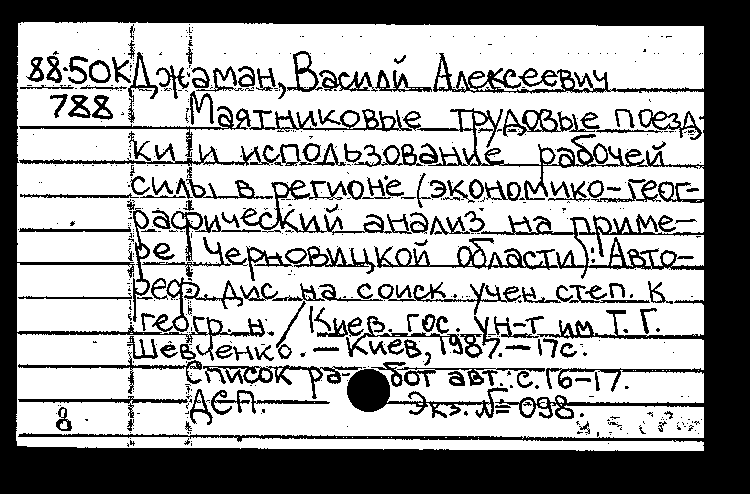 88-50К Джаман, Василй Алексеевич
788 Маятниковые трудовые поезд-
ки и использование рабочей
силы в регионе (экономико-геог-
рафический анализ на приме-
ре Черновицкой области): Авто-
реф. дис на соиск. учен. степ. к
геогр. н. / Киев. гос. ун-т им. Т. Г.
Шевченко. — Киев, 1987. — 17с.
Список работ авт.: с. 16-17.
8 ДСП. Экз. № 098.